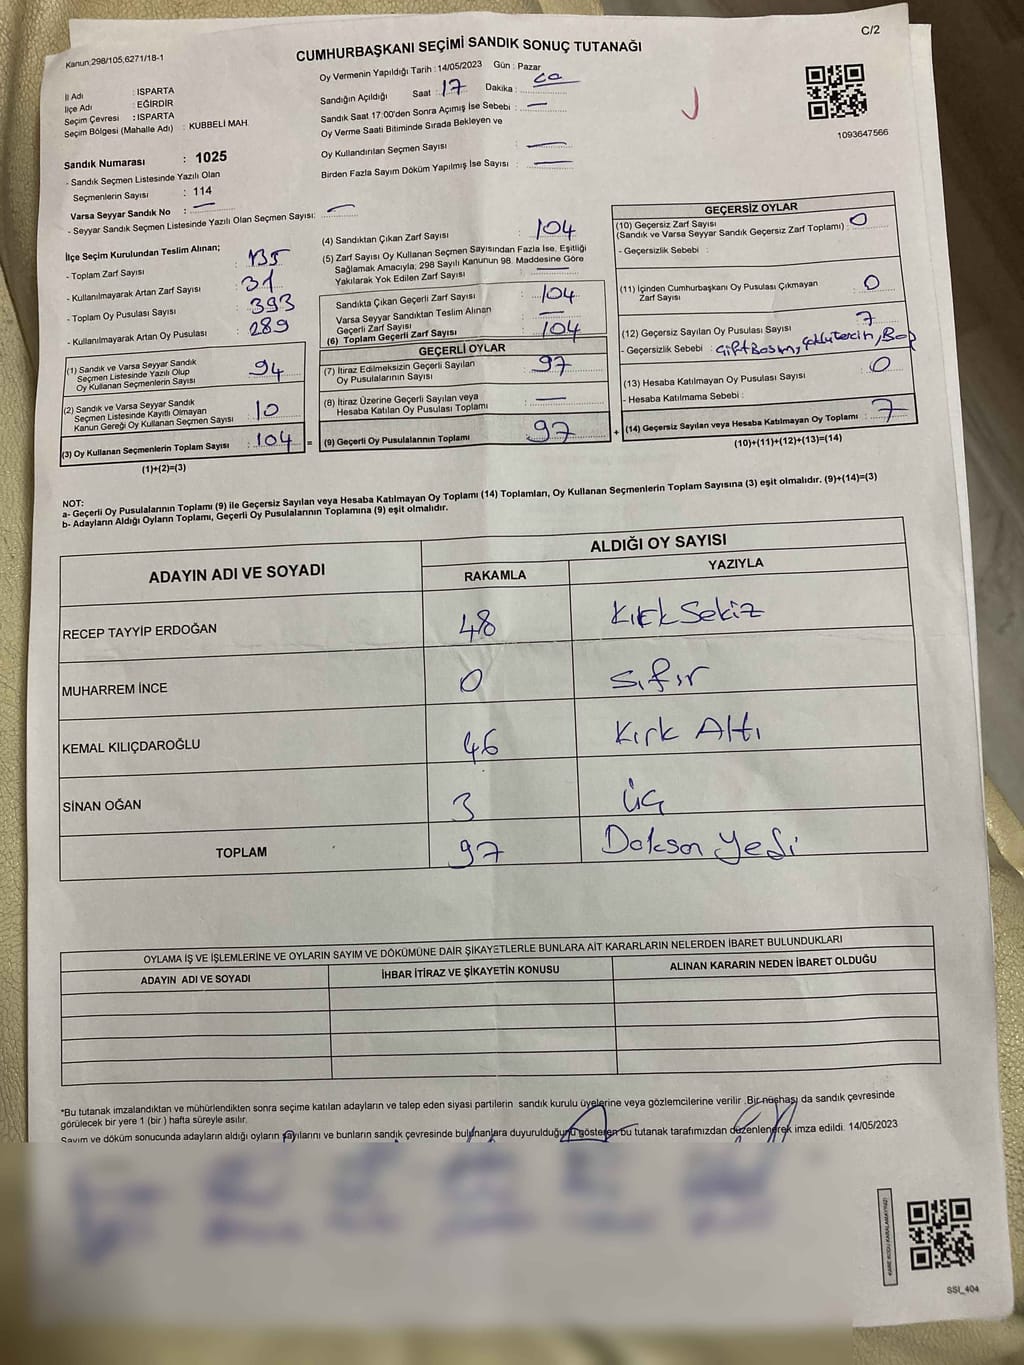 Kanun,298/105,6271/18-1
C/2
CUMHURBAŞKANI SEÇİMİ SANDIK SONUÇ TUTANAĞI
İl Adı : ISPARTA
İlçe Adı : EĞİRDİR
Seçim Çevresi : ISPARTA
Seçim Bölgesi (Mahalle Adı) : KUBBELİ MAH.
Sandık Numarası : 1025
- Sandık Seçmen Listesinde Yazılı Olan
Seçmenlerin Sayısı : 114
Varsa Seyyar Sandık No : —
- Seyyar Sandık Seçmen Listesinde Yazılı Olan Seçmen Sayısı: —
Oy Vermenin Yapıldığı Tarih : 14/05/2023 Gün : Pazar
Sandığın Açıldığı Saat : 17 Dakika :
Sandık Saat 17:00'den Sonra Açımış İse Sebebi : —
Oy Verme Saati Bitiminde Sırada Bekleyen ve
Oy Kullandırılan Seçmen Sayısı : —
Birden Fazla Sayım Döküm Yapılmış İse Sayısı : —
1093647566
İlçe Seçim Kurulundan Teslim Alınan;
- Toplam Zarf Sayısı : 135
- Kullanılmayarak Artan Zarf Sayısı : 31
- Toplam Oy Pusulası Sayısı : 393
- Kullanılmayarak Artan Oy Pusulası : 289
(1) Sandık ve Varsa Seyyar Sandık
Seçmen Listesinde Yazılı Olup
Oy Kullanan Seçmenlerin Sayısı : 94
(2) Sandık ve Varsa Seyyar Sandık
Seçmen Listesinde Kayıtlı Olmayan
Kanun Gereği Oy Kullanan Seçmen Sayısı : 10
(3) Oy Kullanan Seçmenlerin Toplam Sayısı : 104 =
(1)+(2)=(3)
(4) Sandıktan Çıkan Zarf Sayısı : 104
(5) Zarf Sayısı Oy Kullanan Seçmen Sayısından Fazla İse, Eşitliği
Sağlamak Amacıyla; 298 Sayılı Kanunun 98. Maddesine Göre
Yakılarak Yok Edilen Zarf Sayısı : —
Sandıkta Çıkan Geçerli Zarf Sayısı : 104
Varsa Seyyar Sandıktan Teslim Alınan
Geçerli Zarf Sayısı : —
(6) Toplam Geçerli Zarf Sayısı : 104
GEÇERLİ OYLAR
(7) İtiraz Edilmeksizin Geçerli Sayılan
Oy Pusulalarının Sayısı : 97
(8) İtiraz Üzerine Geçerli Sayılan veya
Hesaba Katılan Oy Pusulası Toplamı : —
(9) Geçerli Oy Pusulalarının Toplamı : 97 +
GEÇERSİZ OYLAR
(10) Geçersiz Zarf Sayısı
(Sandık ve Varsa Seyyar Sandık Geçersiz Zarf Toplamı) : 0
- Geçersizlik Sebebi :
(11) İçinden Cumhurbaşkanı Oy Pusulası Çıkmayan
Zarf Sayısı : 0
(12) Geçersiz Sayılan Oy Pusulası Sayısı : 7
- Geçersizlik Sebebi : Çift Basım, Çoklu tercih,
(13) Hesaba Katılmayan Oy Pusulası Sayısı : 0
- Hesaba Katılmama Sebebi :
(14) Geçersiz Sayılan veya Hesaba Katılmayan Oy Toplamı : 7
(10)+(11)+(12)+(13)=(14)
NOT:
a- Geçerli Oy Pusulalarının Toplamı (9) ile Geçersiz Sayılan veya Hesaba Katılmayan Oy Toplamı (14) Toplamları, Oy Kullanan Seçmenlerin Toplam Sayısına (3) eşit olmalıdır. (9)+(14)=(3)
b- Adayların Aldığı Oyların Toplamı, Geçerli Oy Pusulalarının Toplamına (9) eşit olmalıdır.
ADAYIN ADI VE SOYADI ALDIĞI OY SAYISI
RAKAMLA YAZIYLA
RECEP TAYYİP ERDOĞAN 48 Kırk Sekiz
MUHARREM İNCE 0 Sıfır
KEMAL KILIÇDAROĞLU 46 Kırk Altı
SİNAN OĞAN 3 üç
TOPLAM 97 Doksan Yedi
OYLAMA İŞ VE İŞLEMLERİNE VE OYLARIN SAYIM VE DÖKÜMÜNE DAİR ŞİKAYETLERLE BUNLARA AİT KARARLARIN NELERDEN İBARET BULUNDUKLARI
ADAYIN ADI VE SOYADI İHBAR İTİRAZ VE ŞİKAYETİN KONUSU ALINAN KARARIN NEDEN İBARET OLDUĞU
*Bu tutanak imzalandıktan ve mühürlendikten sonra seçime katılan adayların ve talep eden siyasi partilerin sandık kurulu üyelerine veya gözlemcilerine verilir .Bir nüshası da sandık çevresinde
görülecek bir yere 1 (bir ) hafta süreyle asılır.
Sayım ve döküm sonucunda adayların aldığı oyların sayılarını ve bunların sandık çevresinde bulunanlara duyurulduğunu gösteren bu tutanak tarafımızdan düzenlenerek imza edildi. 14/05/2023
KARE KODU KARALAMAYINIZ!
SSI_404